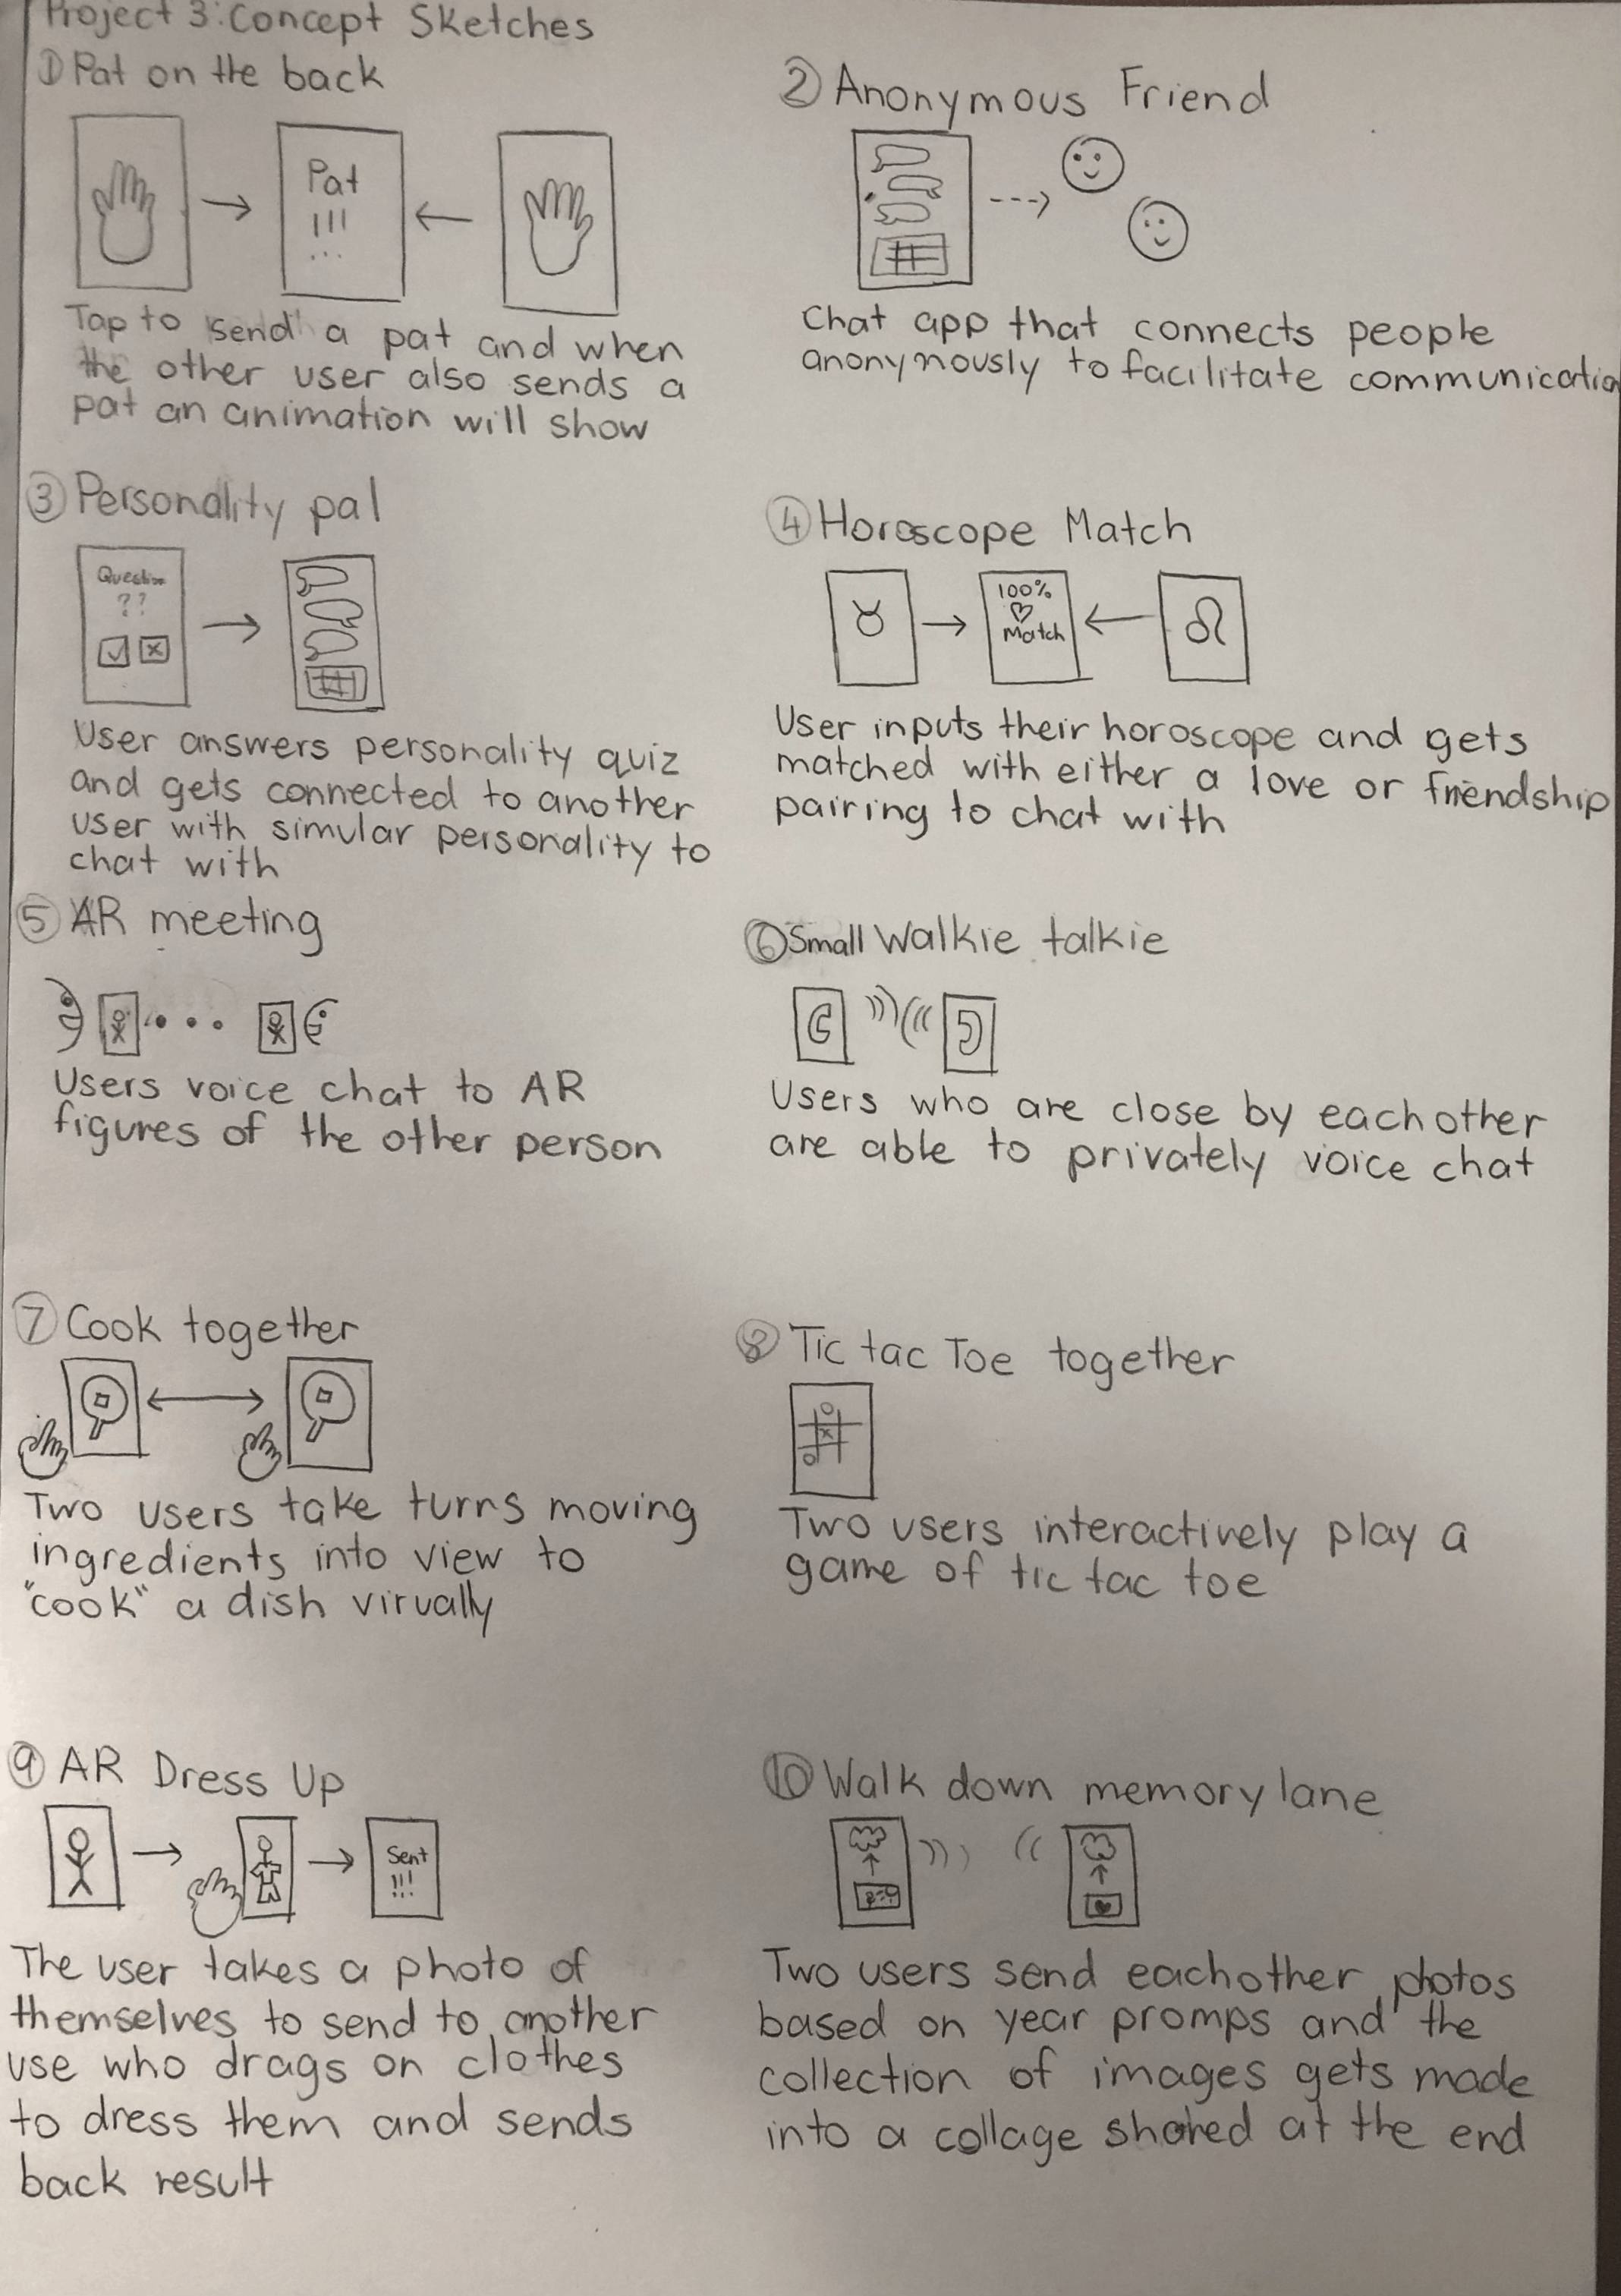 Project 3: Concept Sketches
① Pat on the back
Pat
!!!
...
Tap to send a pat and when
the other user also sends a
pat an animation will show
② Anonymous Friend
Chat app that connects people
anonymously to facilitate communication
③ Personality pal
Question
??
User answers personality quiz
and gets connected to another
user with simular personality to
chat with
④ Horoscope Match
♉
100%
♡
Match
♌
User inputs their horoscope and gets
matched with either a love or friendship
pairing to chat with
⑤ AR meeting
Users voice chat to AR
figures of the other person
⑥ Small Walkie talkie
Users who are close by eachother
are able to privately voice chat
⑦ Cook together
Two users take turns moving
ingredients into view to
"cook" a dish virually
⑧ Tic tac Toe together
Two users interactively play a
game of tic tac toe
⑨ AR Dress Up
Sent
!!!
The user takes a photo of
themselves to send to another
use who drags on clothes
to dress them and sends
back result
⑩ Walk down memory lane
Two users send eachother photos
based on year promps and the
collection of images gets made
into a collage shared at the end